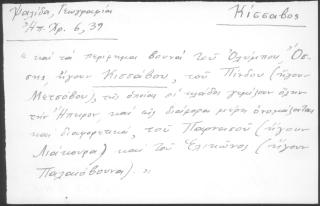 Ψαλίδα, Γεωγραφία
Κίσσαβος
Ἠπ. Χρ. 6, 39
"καὶ τὰ περίφημα βουνὰ τοῦ Ὀλύμπου, Ὄσ-
σης ἤγουν Κισσάβου, τοῦ Πίνδου (ἤγουν
Μετσόβου), τῆς ὁποίας οἱ κλάδοι γεμίζουν ὅλην
τὴν Ἤπειρον καὶ εἰς διάφορα μέρη ὀνομάζονται
καὶ διαφορετικά, τοῦ Παρνασοῦ (ἤγουν
Λιάκουρα) καὶ τοῦ Ἑλικῶνος (ἤγουν
Παλαιόβουνα)."